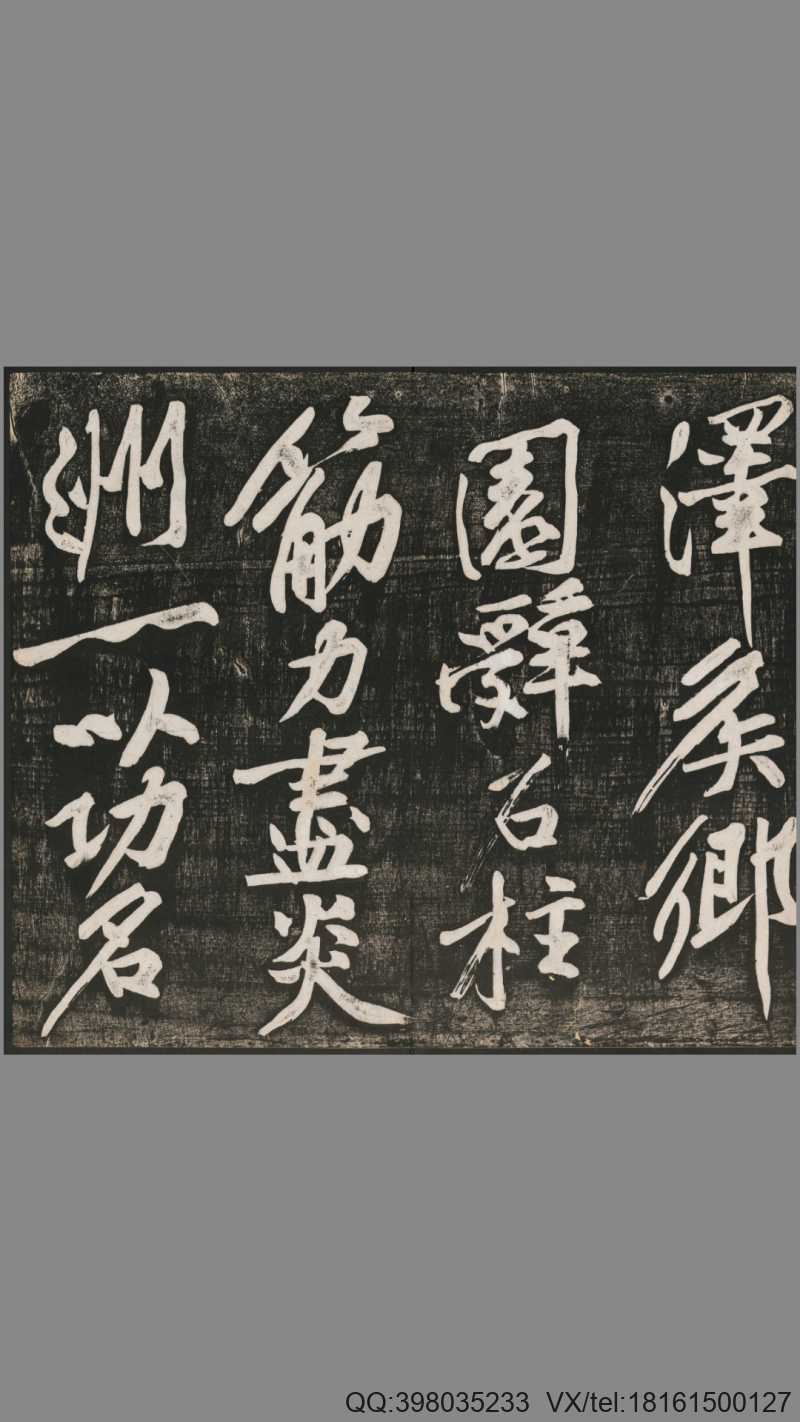 澤矦鄉
園辭石柱
筋力盡炎
洲一以功名
QQ:398035233 VX/tel:18161500127